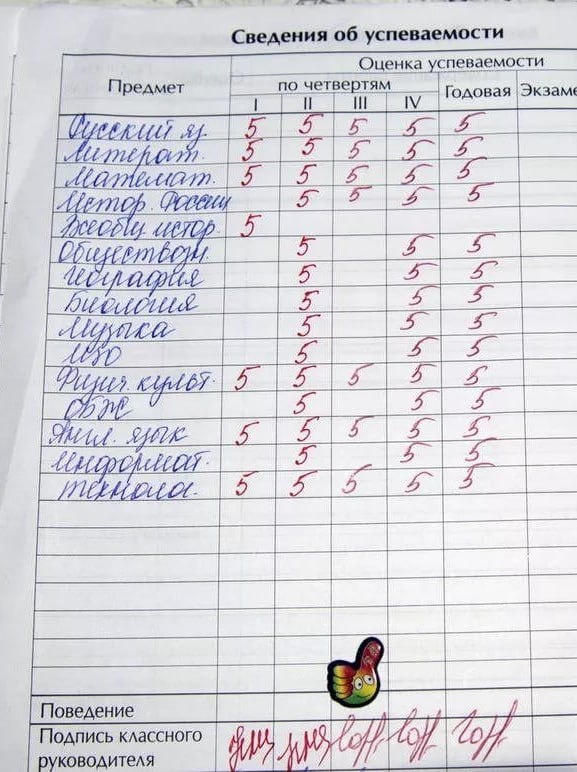 Сведения об успеваемости
Предмет Оценка успеваемости
по четвертям Годовая Экзаме
I II III IV
Русский яз. 5 5 5 5 5
Литерат. 5 5 5 5 5
Математ. 5 5 5 5 5
Истор. России 5 5 5 5
Всеобщ. истор. 5
Обществозн. 5 5 5
География 5 5 5
Биология 5 5 5
Музыка 5 5 5
ИЗО 5 5 5
Физич. культ. 5 5 5 5 5
ОБЖ 5 5 5
Англ. язык 5 5 5 5 5
Информат. 5 5 5
технолог. 5 5 5 5 5
Поведение
Подпись классного
руководителя